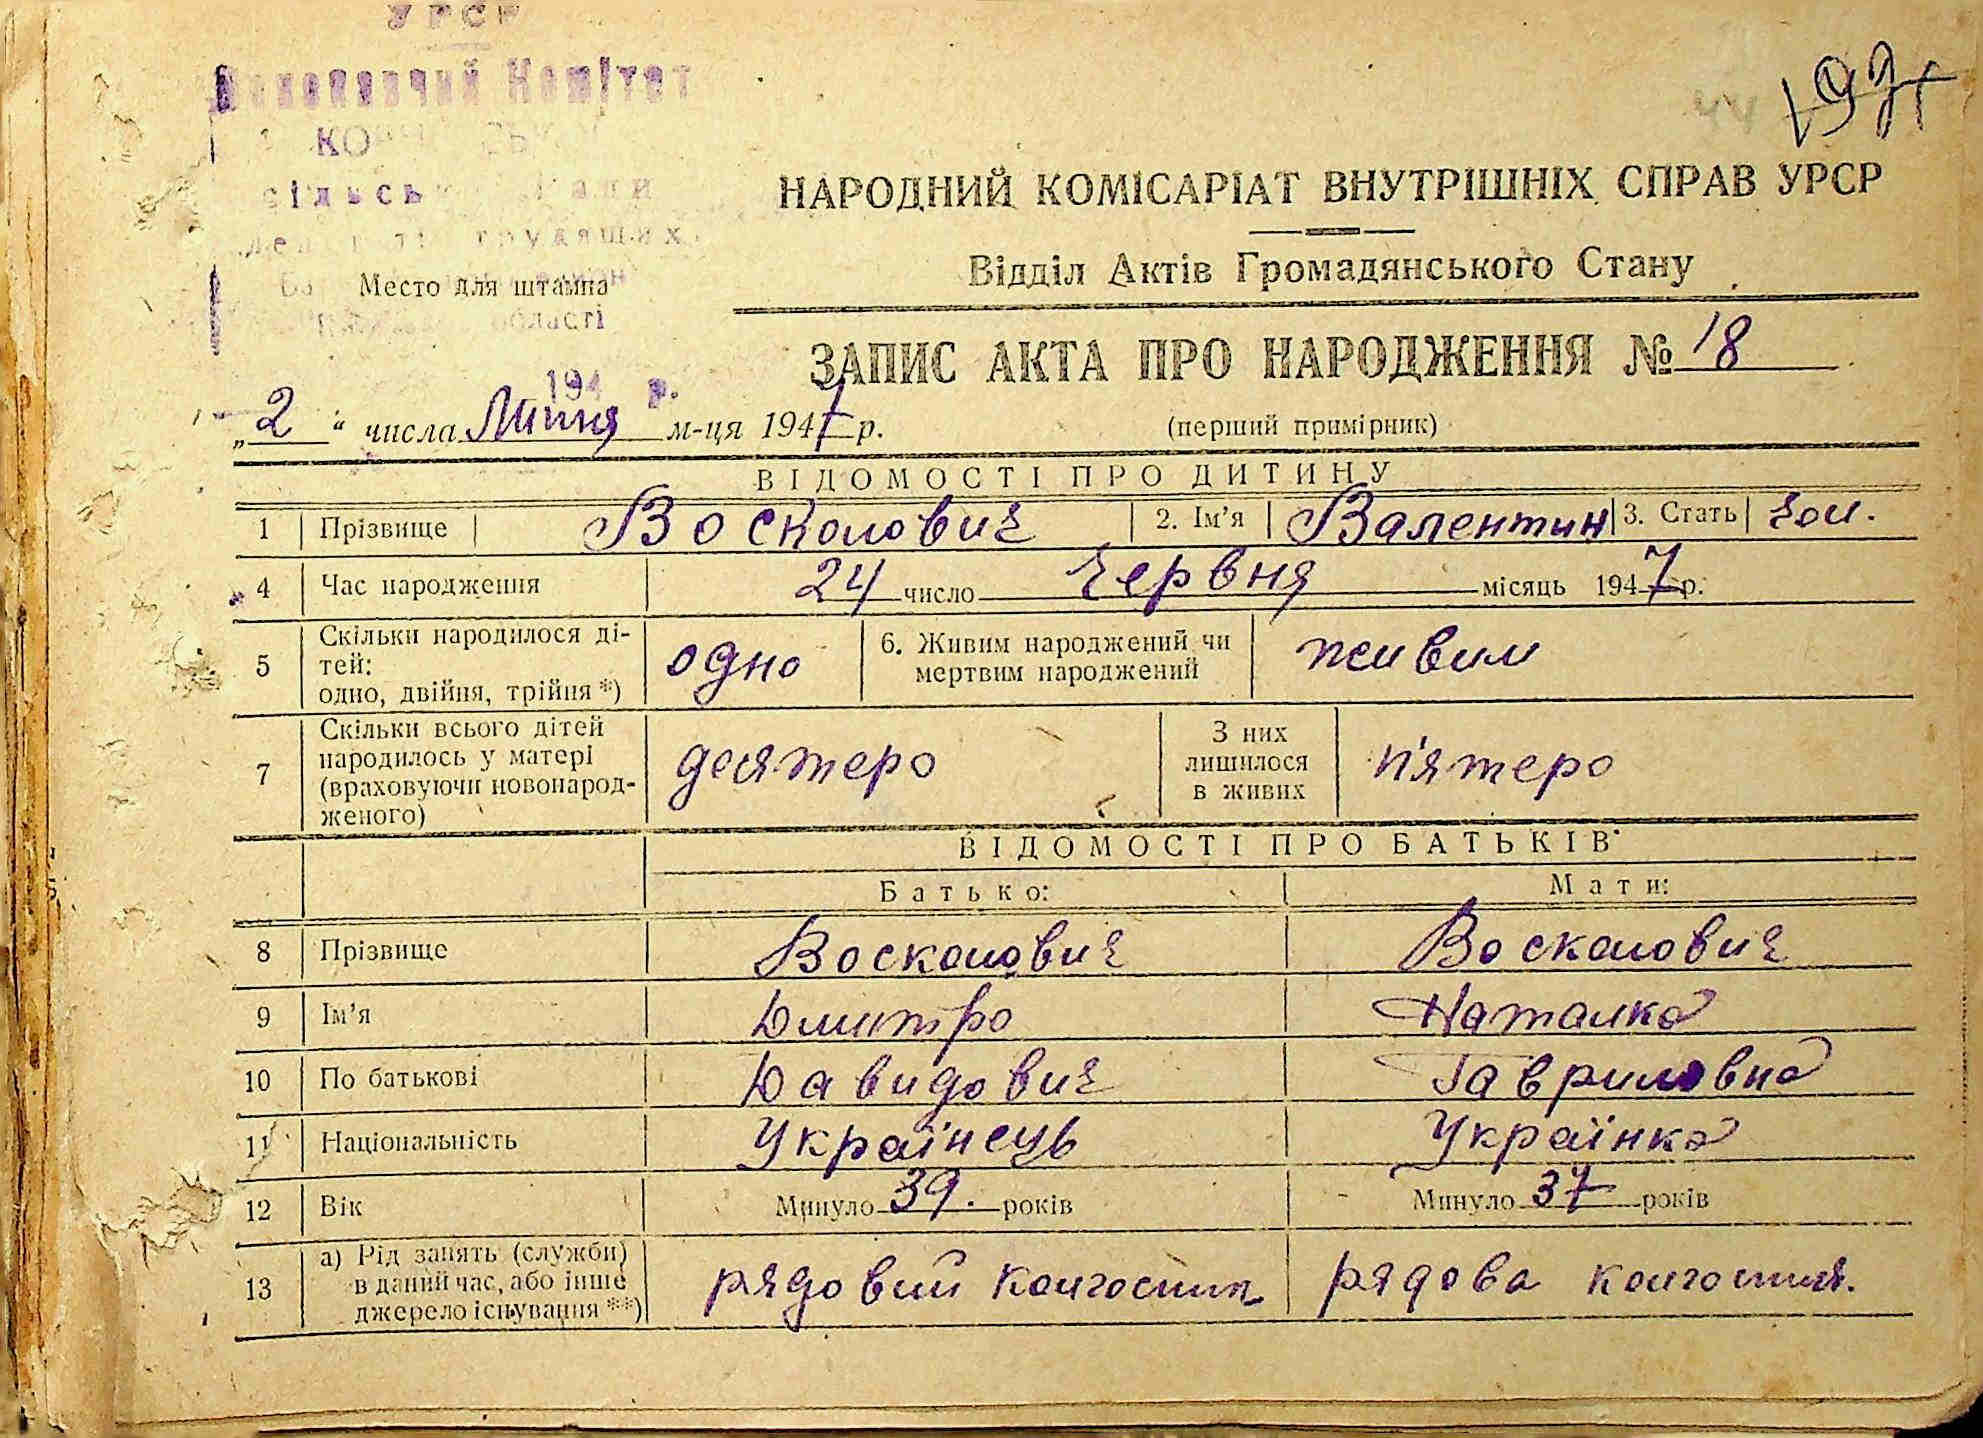 УРСР
Виконавчий Комітет
трудящих
Место для штампа
області
194 р.
НАРОДНИЙ КОМІСАРІАТ ВНУТРІШНІХ СПРАВ УРСР
Відділ Актів Громадянського Стану
ЗАПИС АКТА ПРО НАРОДЖЕННЯ № 18
„2“ числа Липня м-ця 1947 р.
(перший примірник)
ВІДОМОСТІ ПРО ДИТИНУ
1 Прізвище Восколович 2. Ім'я Валентин 3. Стать чол.
4 Час народження 24 число Червня місяць 1947 р.
5 Скільки народилося ді-
тей:
одно, двійня, трійня *) одно 6. Живим народжений чи
мертвим народжений живим
7 Скільки всього дітей
народилось у матері
(враховуючи новонарод-
женого) десятеро З них
лишилося
в живих п'ятеро
ВІДОМОСТІ ПРО БАТЬКІВ
Батько: Мати:
8 Прізвище Восколович Восколович
9 Ім'я Дмитро Наталка
10 По батькові Давидович Гавриловна
11 Національність Українець Українка
12 Вік Минуло 39. років Минуло 37 років
13 а) Рід занять (служби)
в даний час, або інше
джерело існування **) рядовий колгоспник рядова колгоспн.